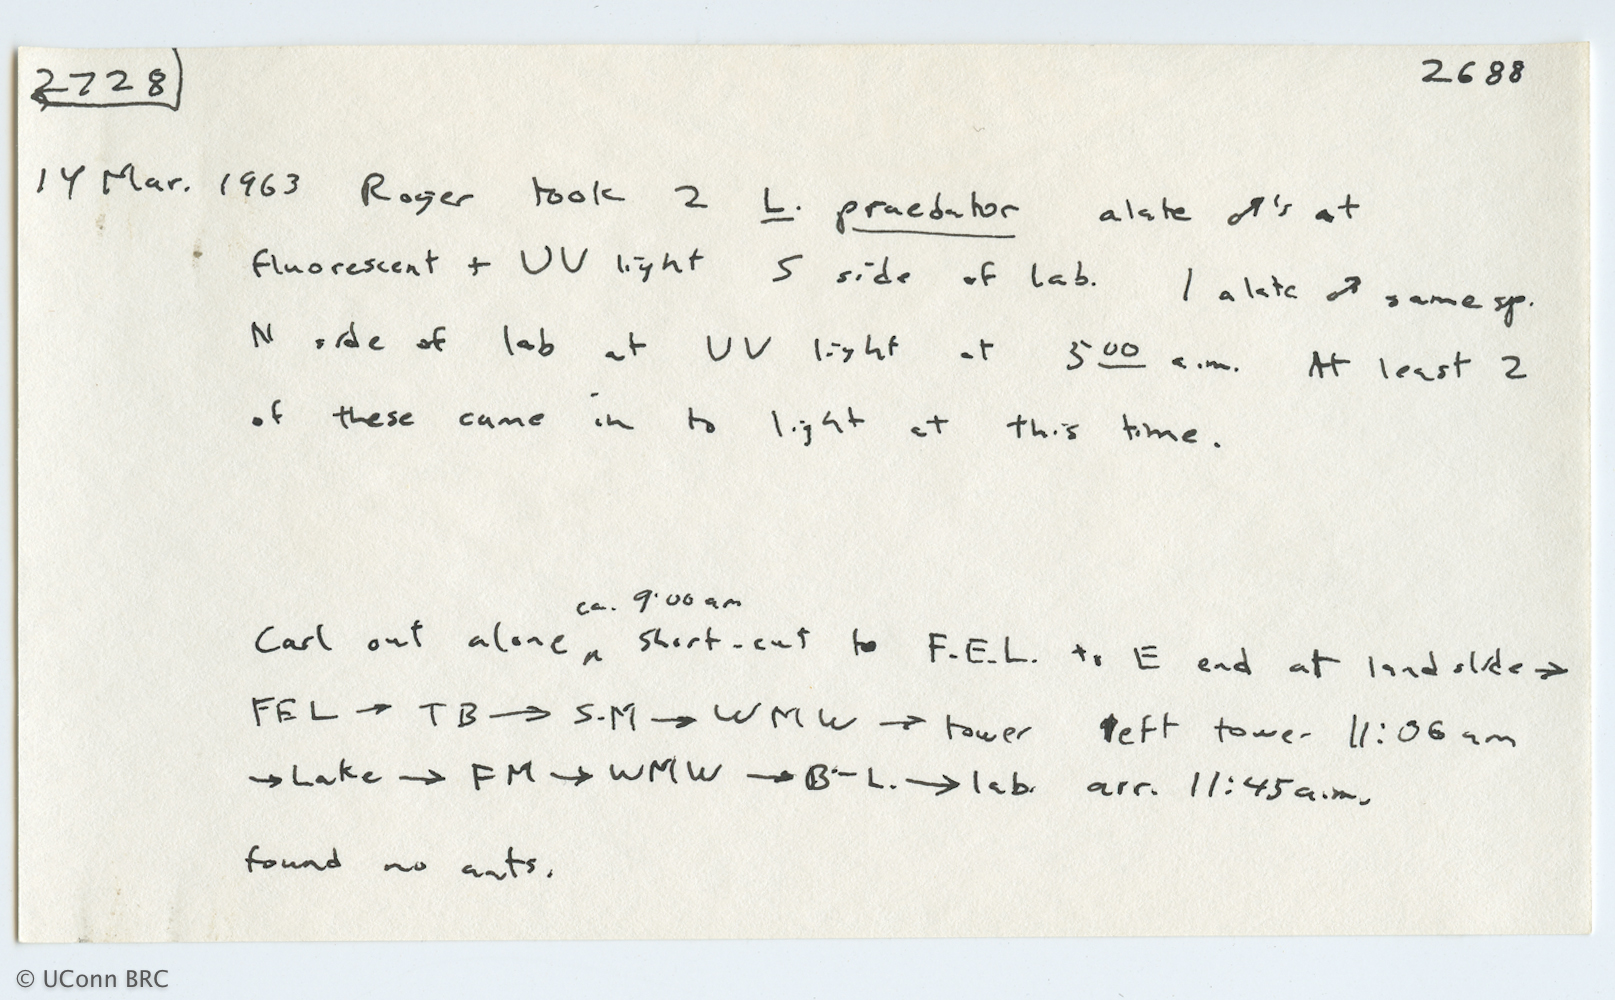 2728 2688
14 Mar. 1963 Roger took 2 L. praedator alate ♂'s at
fluorescent + UV light S side of lab. 1 alate ♂ same sp.
N side of lab at UV light at 5 00 a.m. At least 2
of these came in to light at this time.
ca. 9:00 am
Carl out alone ^ short-cut to F.E.L. to E end at landslide →
FEL → TB → S-M → WMW → tower left tower 11:06 am
→ Lake → FM → WMW → B-L. → lab. arr. 11:45 a.m.
found no ants.
© UConn BRC